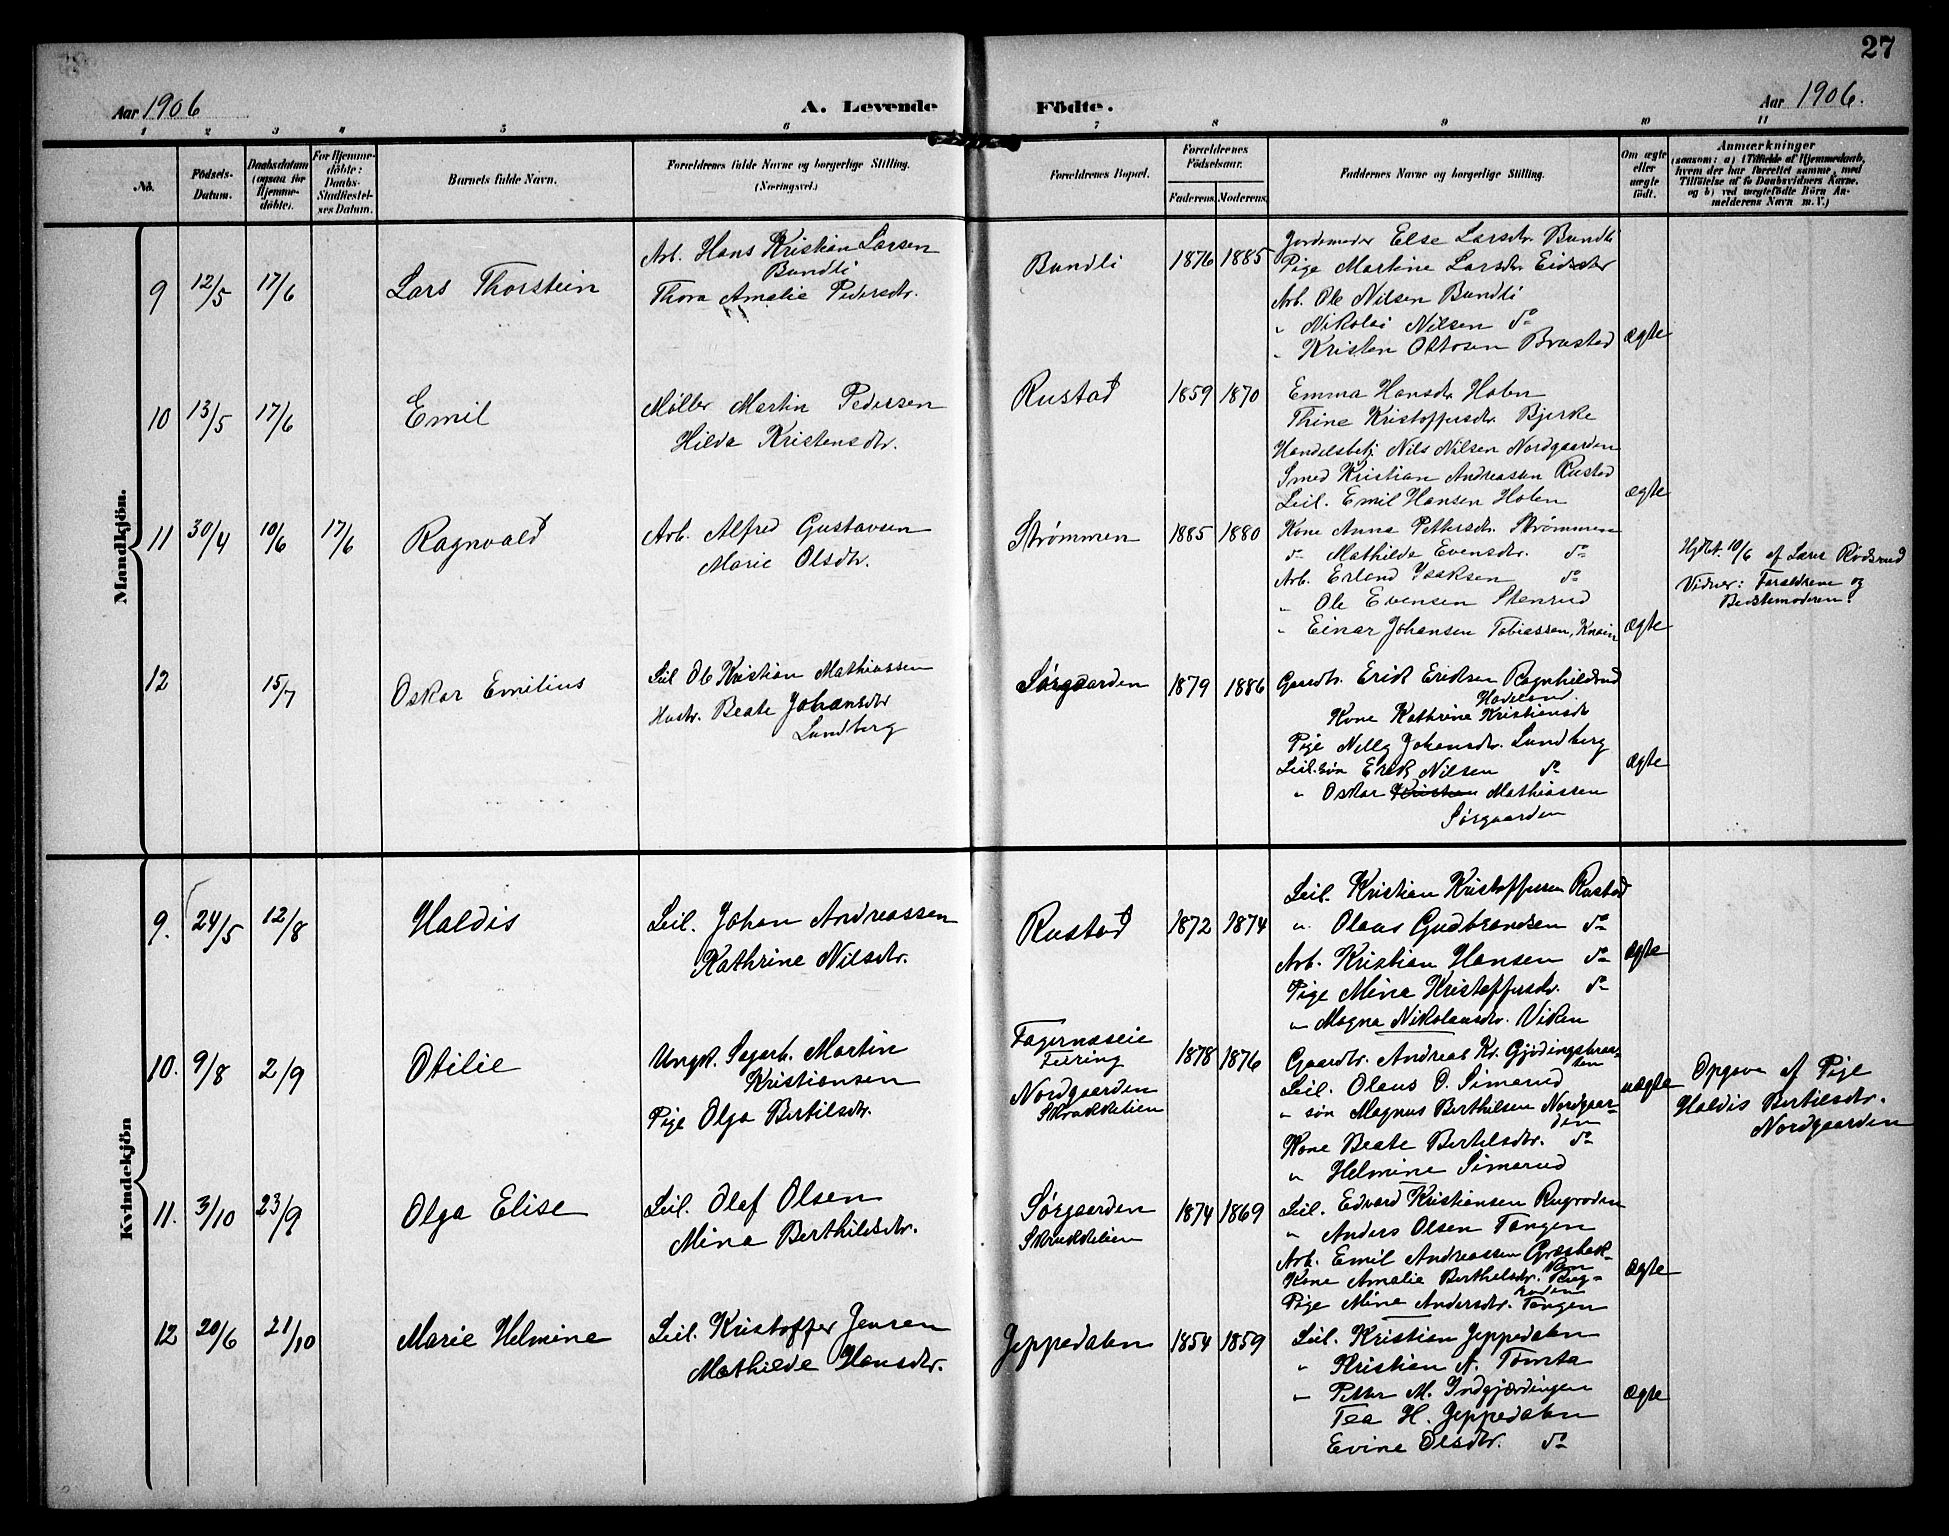 27
Aar 1906
A. Levende
Födte.
Aar 1906.
1 2 3 4 5 6 7 8 9 10 11
No.
Födsels-Datum.
Daabsdatum (ogsaa for Hjemme-döbte).
For Hjemme-döbte: Daabs-Stadfæstel-ses Datum.
Barnets fulde Navn.
Forældrenes fulde Navne og borgerlige Stilling.
(Næringsvei.)
Forældrenes Bopæl.
Forældrenes Födselsaar.
Faderens. Moderens.
Faddernes Navne og borgerlige Stilling.
Om ægte eller uægte födt.
Anmærkninger
(saasom: a) i Tilfælde af Hjemmedaab, hvem der har forrettet samme, med Tilföielse af to Daabsvidners Navne, og b) ved uægtefödte Börn An-melderens Navn m. V.)
Mandkjön.
9 12/5 17/6 Lars Thorstein
Arb. Hans Kristian Larsen
Bundli
Thora Amalie Pedersdtr.
Bundli 1876 1885
Jordemoder Else Larsdtr. Bundli
Pige Martine Larsdtr.
Arb. Ole Nilsen Bundli
" Nikolai Nilsen do
" Kristen Ottosen Brustad
Ægte
10 13/5 17/6 Emil
Møller Martin Pedersen
Hilda Kristensdtr.
Rustad 1859 1870
Emma Hansdtr. Holen
Thine Kristoffersdtr. Bjerke
Handelsbetj. Nils Nilsen Nordgaarden
Smed Kristian Andreassen Rustad
Leil. Emil Hansen Holen
Ægte
11 30/4 10/6 17/6 Ragnvald
Arb. Alfred Gustavsen
Marie Olsdtr.
Strømmen 1885 1880
Kone Anna Pettersdtr. Strømmen
do Mathilde Evensdtr. do
Arb. Erland Isaksen do
" Ole Evensen Stenrud
" Einar Johansen Tobiassen,
Ægte
Hjdbt. 10/6 af Lars Rødsrud
Vidner: Forældrene og
Bestemoderen.
12 15/7 Oskar Emilius
Leil Ole Kristian Mathiassen
Hustr. Beate Johansdtr
Lundberg
Sørgaarden 1879 1886
Gaardbr. Erik Eriksen Ragnhildrud
Hadeland.
Kone Kathrine Kristiansdtr
Pige Nelly Johansdtr. Lundberg
Leil.søn Erik Nilsen do
" Oskar Kristian Mathiassen
Sørgaarden
Ægte
Kvindekjön
9. 24/5 12/8 Haldis
Leil. Johan Andreassen
Kathrine Nilsdtr.
Rustad 1872 1874
Leil. Kristian Kristoffersen Rustad
" Olaus Gudbrandsen do
Arb. Kristian Hansen do
Pige Mina Kristoffersdtr. do
" Magna Nikolausdtr. Viken
Ægte
10. 9/8 2/9 Otilie
Ungk. Sagarb. Martin
Kristiansen
Pige Olga Bertilsdtr.
Fagernæseie
Feiring
Nordgaarden
Skrukkelien
1878 1876
Gaardbr. Andreas Kr. Gjödingstraa-
ten
Leil. Olaus O. Simarud
" søn Magnus Berthilsen Nordgaar-
den
Kone Beate Bertilsdtr. do
" Helmine Simarud
uægte
Opgave af Pige
Haldis Bertilsdtr.
Nordgaarden
11. 3/10 23/9 Olga Elise
Leil. Olaf Olsen
Mina Berthilsdtr.
Sørgaarden
Skrukkelien
1874 1869
Leil. Edvard Kristiansen Rugroden
" Anders Olsen Tangen
Arb. Emil Andreassen Græsbak-
ken
Kone Amalie Berthelsdtr. Rug-
roden
Pige Mina Andersdtr. Tangen
Ægte
12 20/6 21/10 Marie Helmine
Leil. Kristoffer Jensen
Mathilde Hansdtr.
Jeppedalen 1854 1859
Leil. Kristian Jeppedalen
" Kristian A. Tømta
" Petter M. Indgjærdingen
Tea H. Jeppedalen
Evine Olsdtr. do
Ægte